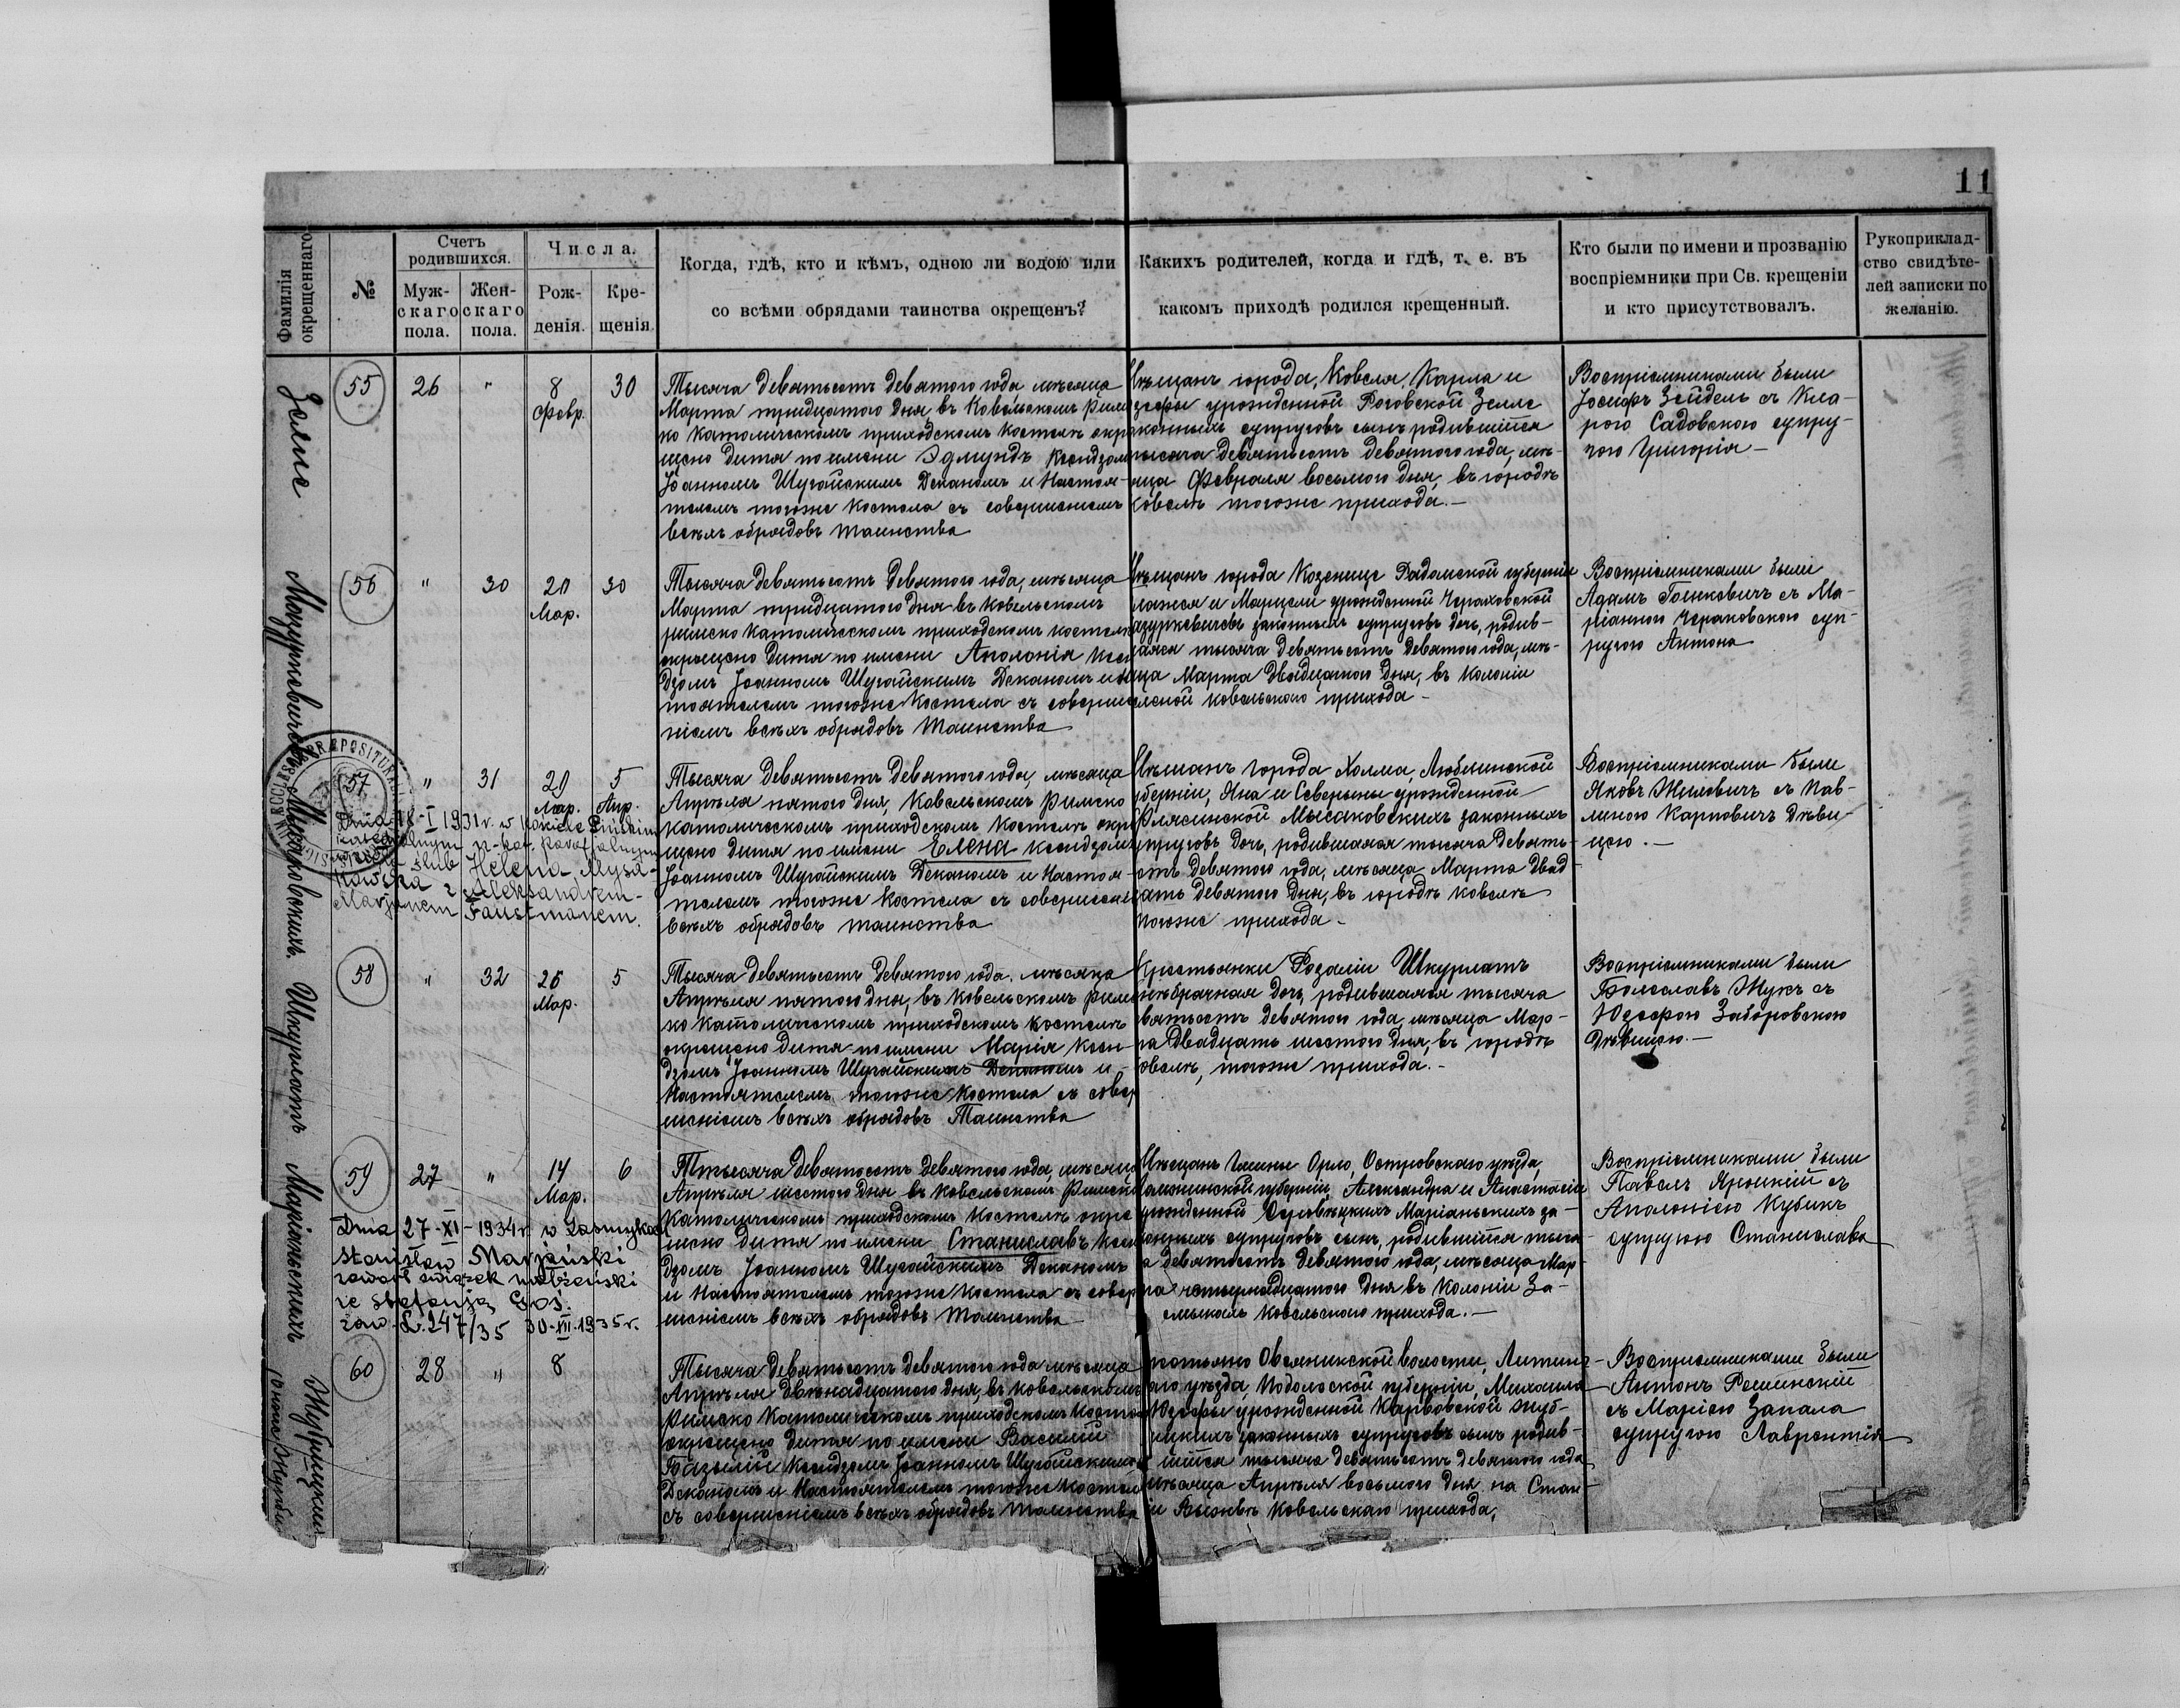 11
Фамилія окрещеннаго
№
Счетъ родившихся.
Мужскаго пола.
Женскаго пола.
Числа.
Рожденія.
Крещенія
Когда, гдѣ, кто и кѣмъ, одною ли водою или
со всѣми обрядами таинства окрещенъ?
Какихъ родителей, когда и гдѣ, т. е. въ
какомъ приходѣ родился крещенный.
Кто были по имени и прозванію
воспріемники при Св. крещеніи
и кто присутствовалъ.
Рукоприклад-
ство свидѣте-
лей записки по
желанію.
Зелле
55 26 " 8 Февр. 30
Тысяча девятьсотъ девятого года мѣсяца
Марта тридцатого дня, въ Ковельскомъ Римс
ко Католическомъ приходскомъ костелѣ окре
щено дитя по имени Эдмундъ Ксендзомъ
Іоанномъ Шугайскимъ Деканомъ и Настоя-
телемъ тогоже Костела съ совершеніемъ
всѣхъ обрядовъ таинства
Мѣщанъ города Ковеля, Карла и
урожденной Роговской Зелле
законныхъ супруговъ сынъ родившійся
тысяча девятьсотъ девятого года, мѣ-
яца Февраля восьмого дня, въ городѣ
Ковелѣ тогоже прихода.—
Воспріемниками были
Іосифъ Зейдель съ Кла-
рою Садовскою супру-
гою Григорія —
Мазуркевичевъ
56 " 30 20 Мар. 30
Тысяча девятьсотъ девятого года, мѣсяца
Марта тридцатого дня въ Ковельскомъ
римско католическомъ приходскомъ костелѣ
окрещено дитя по имени Аполонія Ксен
дзомъ Іоанномъ Шугайскимъ Деканомъ и На
тоятелемъ тогоже Костела съ соверше
ніемъ всѣхъ обрядовъ Таинства
Мѣщанъ города Козенице Радомской губерніи
и Марцели урожденной Чераховской
азуркевичевъ законныхъ супруговъ дочь, родив-
шаяся тысяча девятьсотъ девятого года, мѣ-
яца Марта двадцатого дня, въ Колоніи
Ковельского прихода —
Воспріемниками были
Адамъ съ Ма-
ріанною Чераховскою суп-
ругою Антона
57 " 31 29 Мар. 5 Апр.
Dnia 18-I 1931 r. w Kościele Pińskim
Katedralnym r.-kat. parafjalnym
ślub Helena Mysa-
kowska z Aleksandrem-
Marjanem Faustmanem.
Тысяча девятьсотъ девятого года, мѣсяца
Апрѣля пятого дня, Ковельскомъ Римско
католическомъ приходскомъ костелѣ окре
щено дитя по имени Елена ксендзомъ
Іоанномъ Шугайскимъ Деканомъ и Настоя-
телемъ тогоже Костела съ совершені
всѣхъ обрядовъ таинства
Мѣщанъ города Холма, Люблинской
уберніи, Яна и Северины урожденной
Мысаковскихъ законныхъ
упруговъ дочь, родившаяся тысяча девять-
отъ девятого года, мѣсяца Марта двад-
цать девятого дня, въ городѣ Ковелѣ
тогоже прихода —
Воспріемниками были
Яковъ съ Пав-
линою Карповичъ дѣви-
цею. —
Шкурлатъ
58 " 32 26 Мар. 5
Тысяча девятьсотъ девятого года, мѣсяца
Апрѣля пятого дня, въ Ковельскомъ Римс
ко Католическомъ приходскомъ костелѣ
окрещено дитя по имени Марія Ксен-
дзомъ Іоанномъ Шугайскимъ Деканомъ и
Настоятелемъ тогоже Костела съ совер
шеніемъ всѣхъ обрядовъ Таинства
Крестьянки Розаліи Шкурлатъ
нѣбрачная дочь, родившаяся тысяча
вятьсотъ девятого года, мѣсяца Мар-
та двадцать шестого дня, въ городѣ
овелѣ, тогоже прихода. —
Воспріемниками были
Болеславъ Жукъ съ
Юзефою Заборовскою
Дѣвицею. —
Маріаньскихъ
59 27 " 14 Мар. 6
Dnia 27-XI-1934 r. w
Stanisław Marjański
zawarł związek małżeński
ze Stefanją Goś.
zaw. L. 247/35 30-III-1935 r.
Тысяча девятьсотъ девятого года, мѣсяца
Апрѣля шестого дня въ Ковельскомъ Римско
Католическомъ приходскомъ Костелѣ окре
щено дитя по имени Станиславъ Ксен
дзомъ Іоанномъ Шугайскимъ Деканомъ
и Настоятелемъ тогоже Костела съ совер
шеніемъ всѣхъ обрядовъ Таинства —
Мѣщанъ Гмины Орло, Островскаго уѣзда,
Ломжинской губерніи, Александра и Анастасіи
урожденной Маріаньскихъ за-
конныхъ супруговъ сынъ, родившійся тыся-
а девятьсотъ девятого года, мѣсяца Мар-
та четырнадцатого дня въ Колоніи За-
Ковельского прихода. —
Воспріемниками были
Павелъ съ
Аполоніею Кубикъ
супругою Станислава
60 28 " 8
Тысяча девятьсотъ девятого года мѣсяца
Апрѣля двѣнадцатого дня, въ Ковельскомъ
Римско Католическомъ приходскомъ Косте
окрещено дитя по имени Василій
Базылій Ксендзомъ Іоанномъ Шугайскимъ
Деканомъ и Настоятелемъ тогоже Костел
съ совершеніемъ всѣхъ обрядовъ Таинства
Овсяникской волости, Литинс-
аго уѣзда, Подольской губерніи, Михаила
Юзефы урожденной Карвовской
законныхъ супруговъ сынъ родив-
шійся тысяча девятьсотъ девятого года
мѣсяца Апрѣля восьмого дня на Стан-
іи Ковельскаго прихода,
Воспріемниками были
Антонъ
съ Маріею Запала
супругою Лаврентія